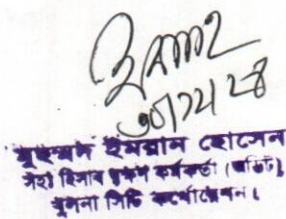 ৩০/১২/২৪
মুহম্মদ ইমরান হোসেন
সহঃ হিসাব রক্ষণ কর্মকর্তা (অডিট)
খুলনা সিটি কর্পোরেশন।